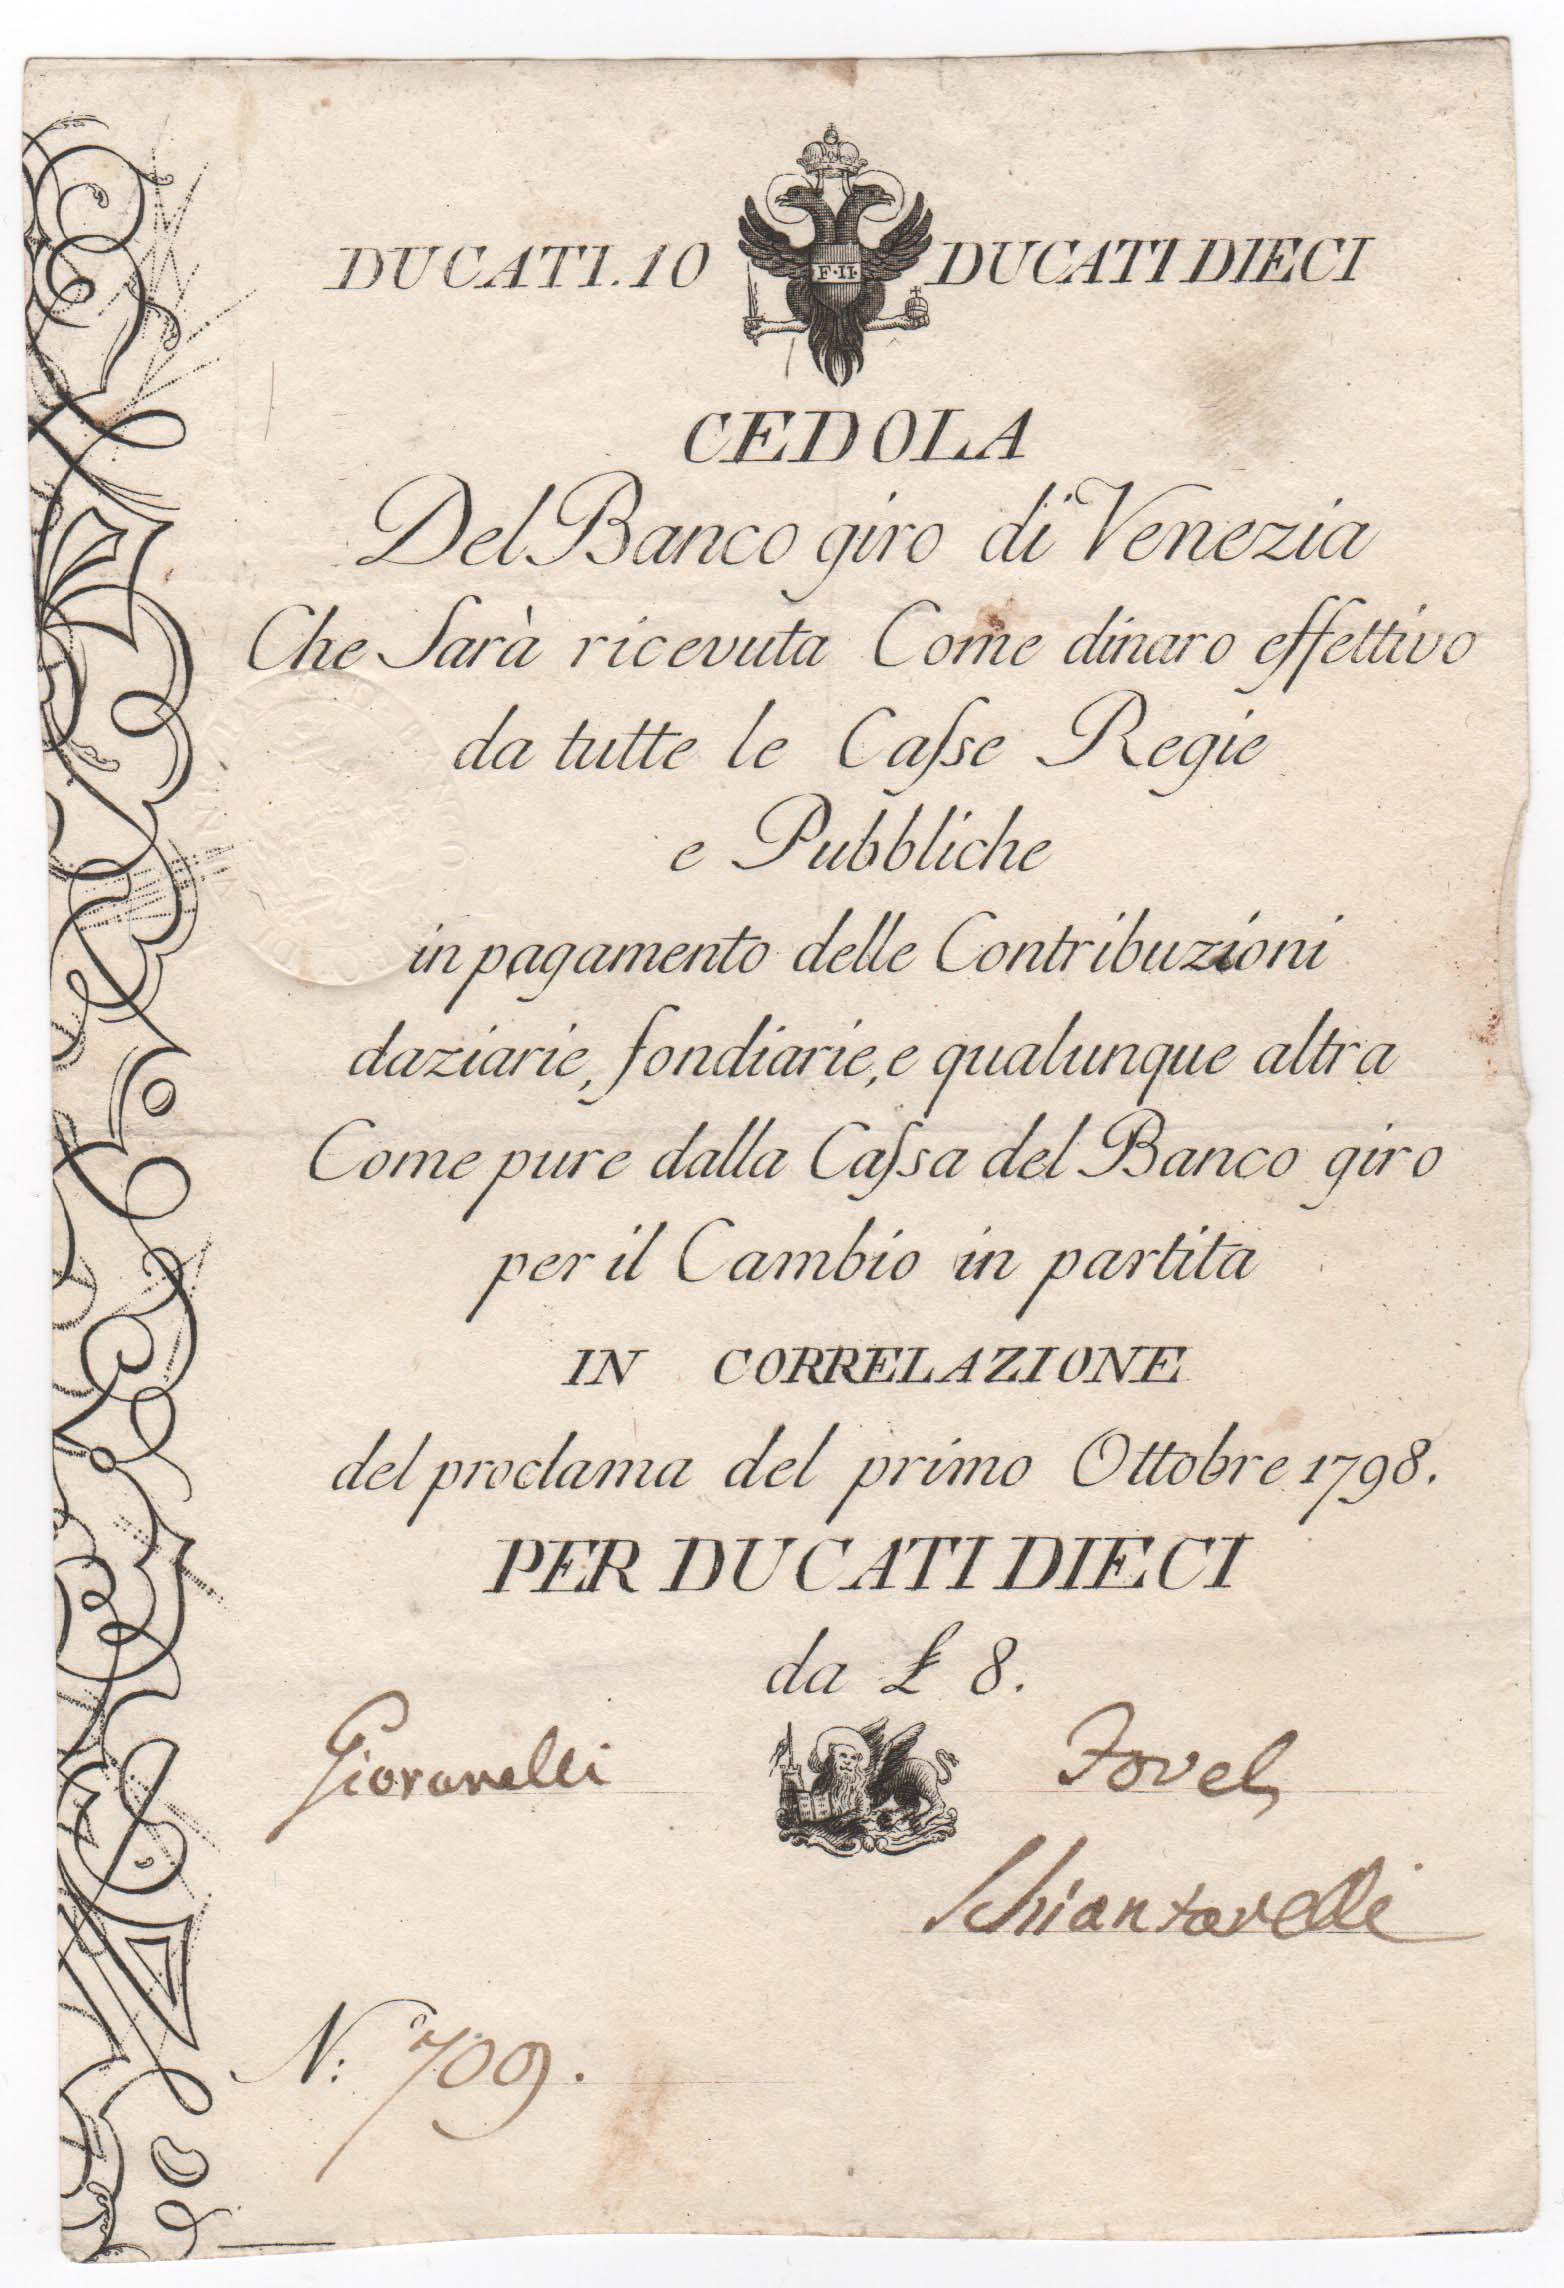 DUCATI. 10 DUCATI DIECI
F·II·
CEDOLA
Del Banco giro di Venezia
Che Sarà ricevuta Come dinaro effettivo
da tutte le Caſse Regie
e Pubbliche
in pagamento delle Contribuzioni
daziarie, fondiarie, e qualunque altra
Come pure dalla Caſsa del Banco giro
per il Cambio in partita
IN CORRELAZIONE
del proclama del primo Ottobre 1798.
PER DUCATI DIECI
da £ 8.
Giovanelli
Schiantarelli
N:º 709.